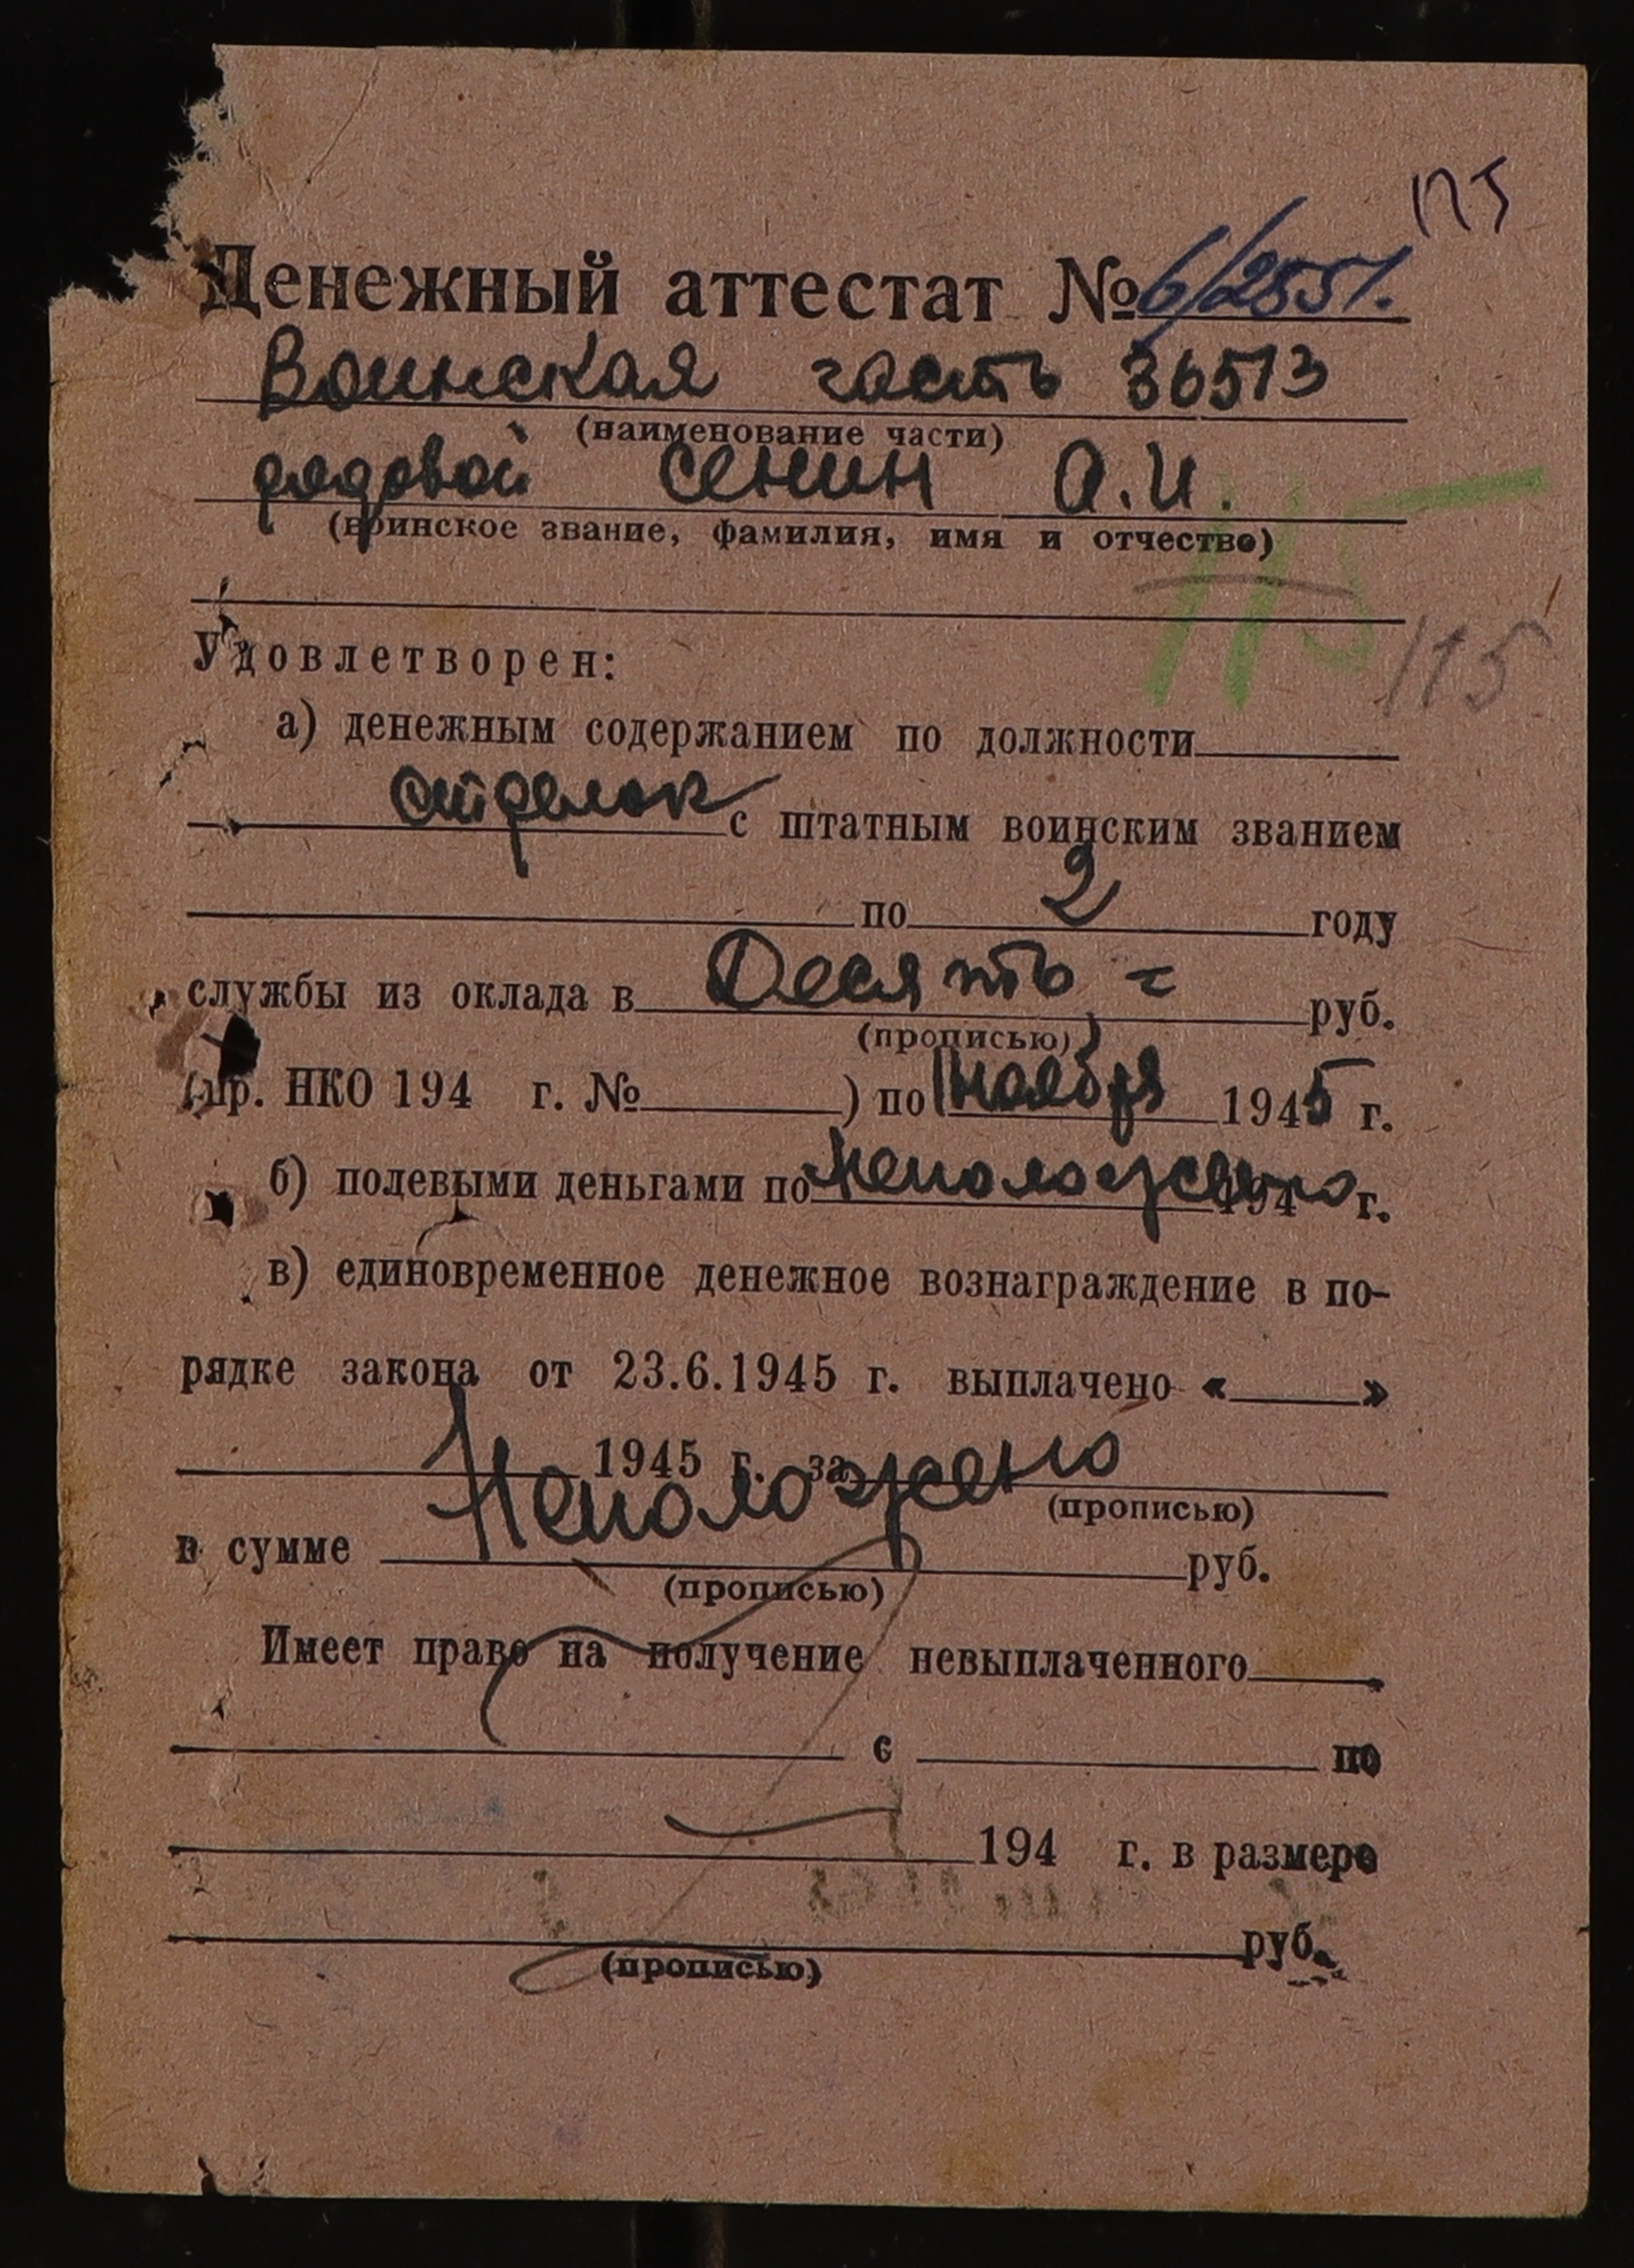 115
Денежный аттестат № 6/2551.
Воинская часть 36513
(наименование части)
рядовой Сенин А.И.
(воинское звание, фамилия, имя и отчество)
115
115
Удовлетворен:
а) денежным содержанием по должности
стрелок с штатным воинским званием
по 2 году
службы из оклада в Десять = руб.
(прописью)
(пр. НКО 194 г. № ) по 1 ноября 1945 г.
б) полевыми деньгами по неположено 194 г.
в) единовременное денежное вознаграждение в по-
рядке закона от 23.6.1945 г. выплачено « »
1945 г. за
Неположено
(прописью)
в сумме руб.
(прописью)
Имеет право на получение невыплаченного
с по
194 г. в размере
руб.
(прописью)